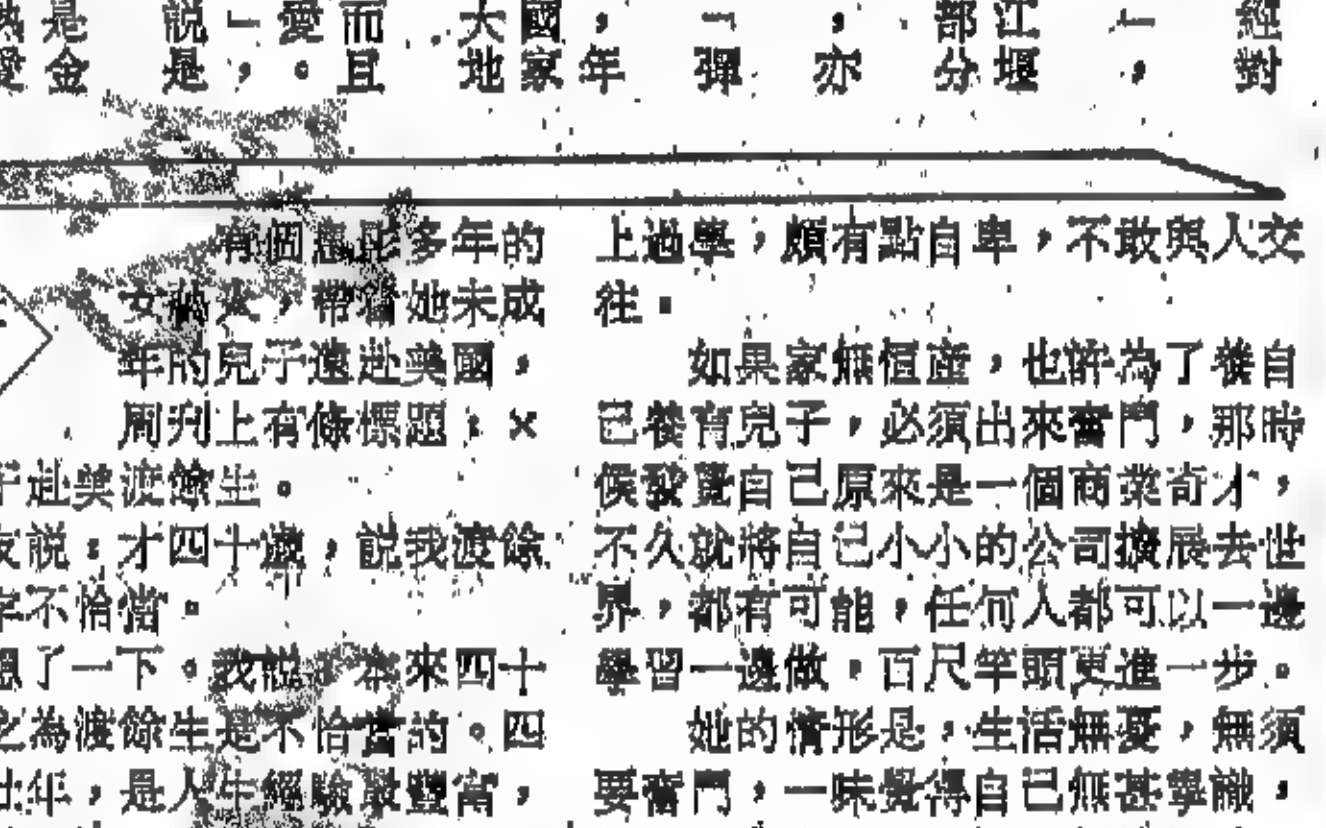 經對
」，
江堰
部分
，亦
「彈
，年
國家
大地
而且
愛。
」，
説是
是金
愛
有個息影多年的
女藝人，帶着她未成
年的兒子遠赴美國，
周刋上有條標題：×
子赴美渡餘生。
友説：才四十歲，説我渡餘
字不恰當。
想了一下。我説：本來四十
之為渡餘生是不恰當的。四
壯年，是人生經驗最豐富，
上過學，頗有點自卑，不敢與人交
往。
如果家無恒產，也許為了養自
己養育兒子，必須出來奮鬥，那時
侯發覺自己原來是一個商業奇才，
不久就將自己小小的公司擴展去世
界，都有可能，任何人都可以一邊
學習一邊做，百尺竿頭更進一步。
她的情形是，生活無憂，無須
要奮鬥，一味覺得自己無甚學識，